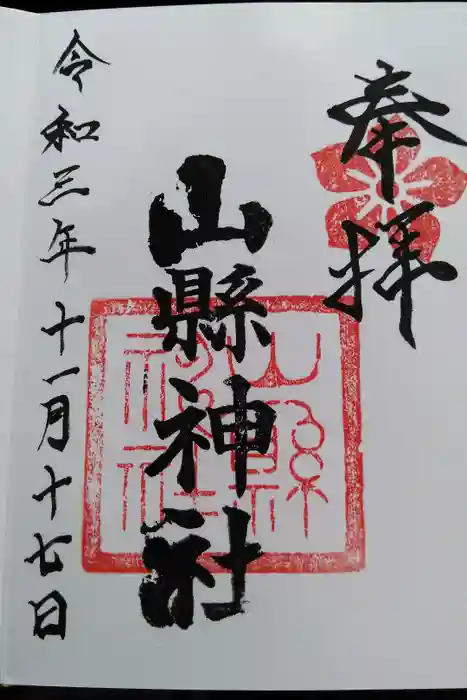 奉拝
山縣神社
山縣神社
令和三年十一月十七日